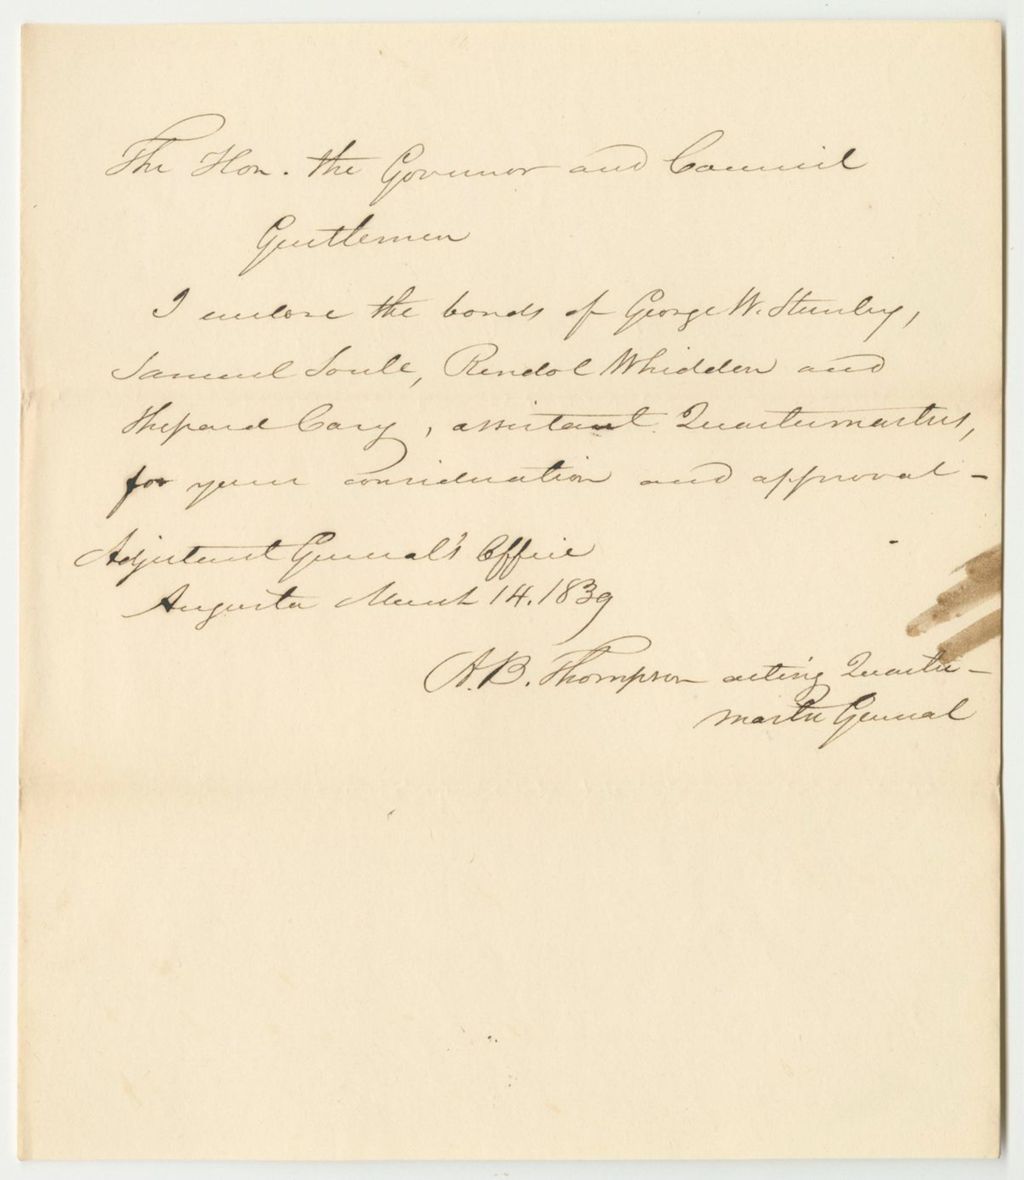 The Hon. the Governor and Council
Gentlemen
I enclose the bonds of George W. Stanley,
Samuel Soule, Rendol Whidden and
Shepard Cary, assistant Quartermasters,
for your consideration and approval -
Adjutant General's Office
Augusta March 14. 1839
A. B. Thompson acting Quarter -
master General